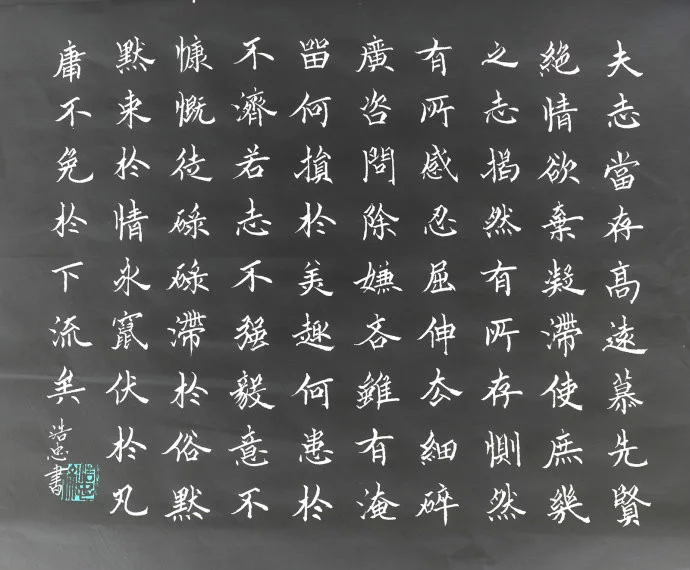 夫志當存高遠慕先賢
絶情欲棄凝滯使庶幾
之志揭然有所存惻然
有所感忍屈伸去細碎
廣咨問除嫌吝雖有淹
留何損於美趣何患於
不濟若志不强毅意不
慷慨徒碌碌滯於俗默
默束於情永竄伏於凡
庸不免於下流矣
浩忠書